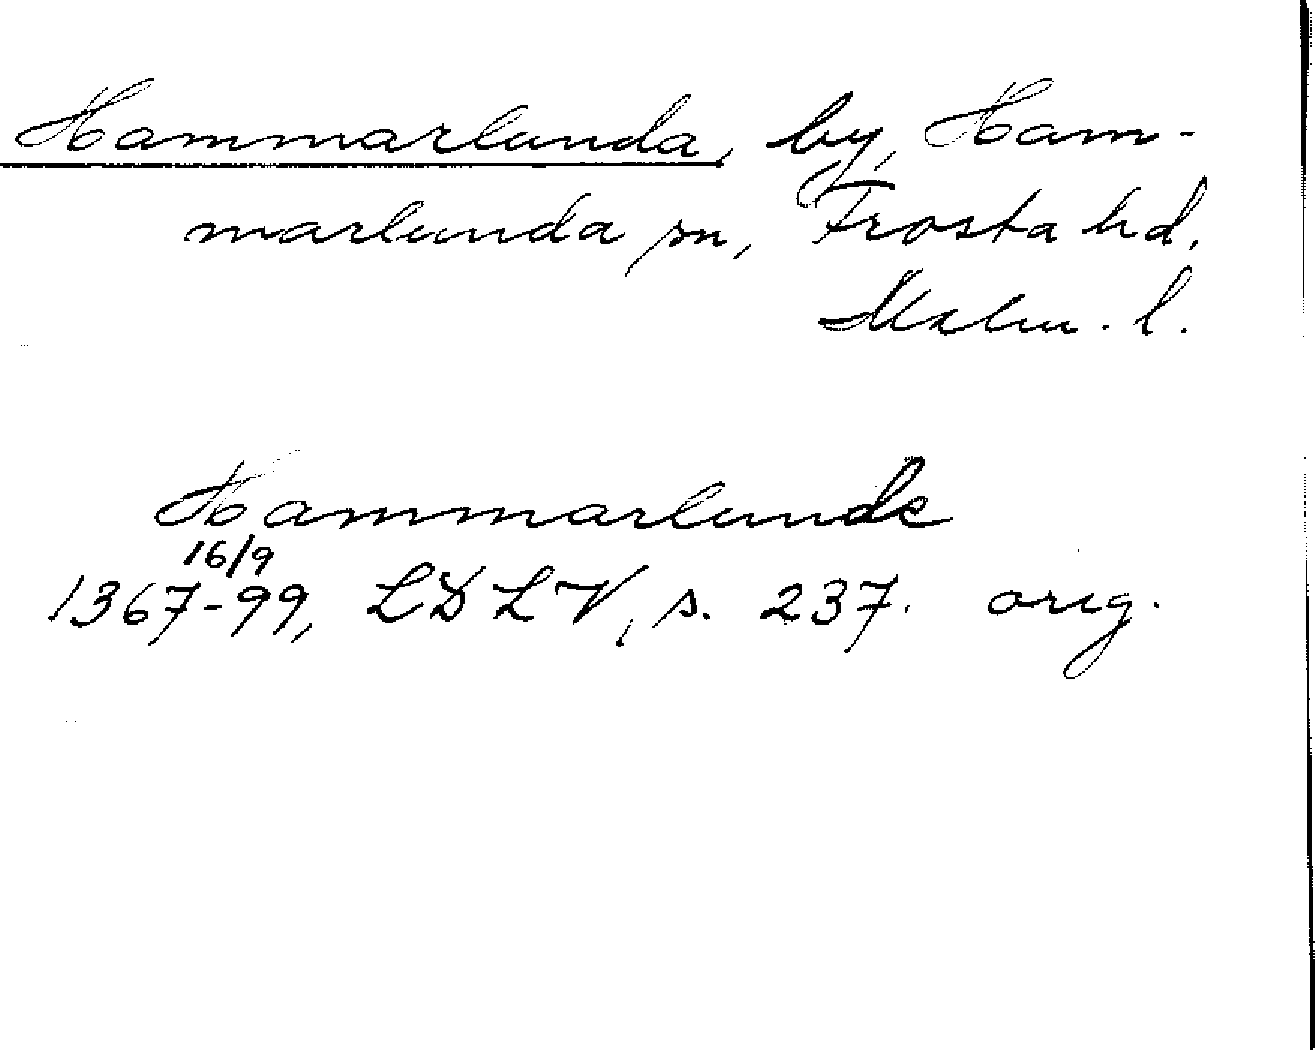 Hammarlunda, by, Ham-
marlunda sn, Frosta hd,
Malm. l.
Hammarlunde
16/9
1367-99, LDLV, s. 237. orig.